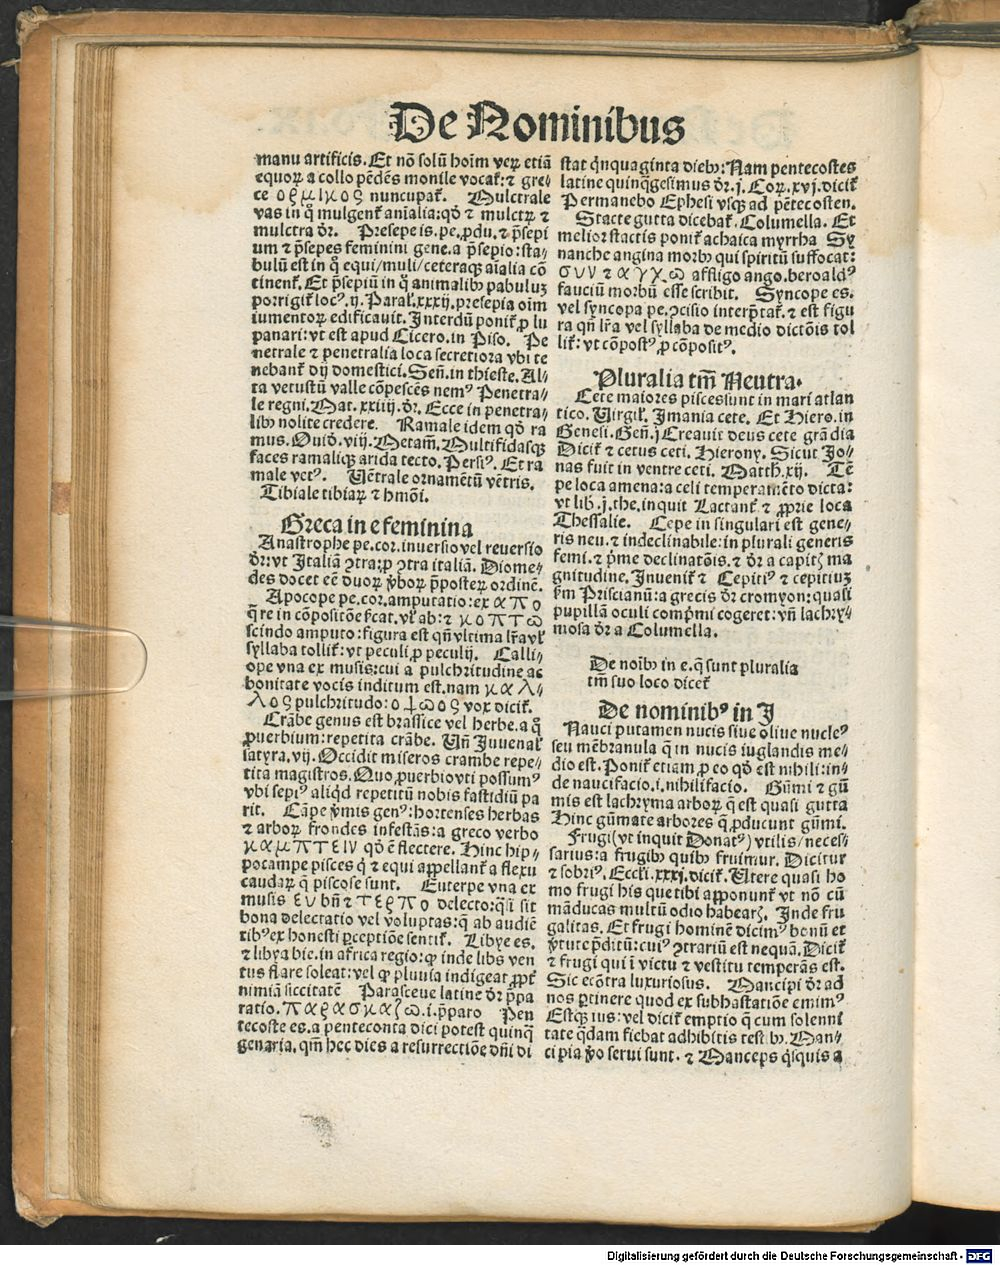 De Nominibus
manu artificis. Et nō solū hoīm veꝝ etiā
equoꝝ a collo pēdēs monile vocat̄: ⁊ gre⸗
ce ορμίκος nuncupat̄. Mulctrale
vas in q̊ mulgent̄ aīalia: qđ ⁊ mulctꝝ ⁊
mulctra dr̄. Presepe is. pe. pdu. ⁊ p̄sepi
um ⁊ p̄sepes feminini gene. a p̄sepio: sta⸗
bulū est in q̊ equi/muli/ceteraqꝫ aīalia cō
tinent̄. Et p̄sepiū in q̊ animalibꝰ pabuluꝫ
porrigit̄ locꝰ. ij. Paral̄. xxxij. presepia oīm
iumentoꝝ edificauit. Interdū ponit̄ ꝓ lu
panari: vt est apud Cicero. in Piso. Pe
netrale ⁊ penetralia loca secretiora vbi te
nebant̄ dij domestici. Sen̄. in thieste. Al⸗
ta vetustū valle cōpescēs nemꝰ Penetra⸗
le regni. Mat. xxiiij. dr̄. Ecce in penetra⸗
libꝰ nolite credere. Ramale idem qđ ra
mus. Ouid. viij. Metam̄. Multifidasqꝫ
faces ramaliqꝫ arida tecto. Persiꝰ. Et ra
male vetꝰ. Vētrale ornamētū vētris.
Tibiale tibiaꝝ ⁊ hmōi.
Greca in e feminina
Anastrophe pe. cor. inuersio vel reuersio
dr̄: vt Italiā ꝯtra: ꝓ ꝯtra italiā. Diome⸗
des docet eē duoꝝ v̄boꝝ p̄posteꝝ ordinē.
Apocope pe. cor. amputatio: ex απο
q̄ re in cōpositōe
scindo amputo: figura est qn̄ vltima lr̄a vl̄
syllaba tollit̄: vt peculi ꝓ peculij. Calli⸗
ope vna ex musis: cui a pulchritudine ac
bonitate vocis inditum est. nam καλ⸗
λος pulchritudo: οψος vox dicit̄.
Crābe genus est brassice vel herbe. a q̊
ꝓuerbium: repetita crābe. Vn̄ Juuenal̄
satyra. vij. Occidit miseros crambe repe⸗
tita magistros. Quo ꝓuerbio vti possumꝰ
vbi sepiꝰ aliqđ repetitū nobis fastidiū pa
rit. Cāpe v̄mis genꝰ: hortenses herbas
⁊ arboꝝ frondes infestās: a greco verbo
καμπτειν qđ ē flectere. Hinc hip⸗
pocampe pisces q̄ ⁊ equi appellant̄ a flexu
caudaꝝ q̄ piscose sunt. Euterpe vna ex
musis ευ bn̄ ⁊ τερπο delecto: q̄si sit
bona delectatio vel voluptas: q̄ ab audiē
tibꝰ ex honesti ꝑceptiōe sentit̄. Libye es.
⁊ libya bie. in africa regio: ꝙ inde libs ven
tus flare soleat: vel ꝙ pluuia indigeat ꝓpt̄
nimiā siccitatē Parasceue latine dr̄ p̄pa
ratio. παρασκαζω. i. p̄paro Pen
tecoste es. a penteconta dici potest quinq̄
genaria. qm̄ hec dies a resurrectiōe dn̄i di
stat q̄nquaginta diebꝰ: Nam pentecostes
latine quinq̄gesimus dr̄. j. Coꝝ. xvj. dicit̄
Permanebo Ephesi vsqꝫ ad pētecosten.
Stacte gutta dicebat̄. Columella. Et
melior stactis ponit̄ achaica myrrha Sy
nanche angina morbꝰ qui spiritū suffocat:
συν ⁊ αγχω affligo ango. beroaldꝰ
fauciū morbū esse scribit. Syncope es.
vel syncopa pe. ꝯcisio interp̄tat̄. ⁊ est figu
ra qn̄ lr̄a vel syllaba de medio dictōis tol
lit̄: vt cōpostꝰ ꝓ cōpositꝰ.
Pluralia tm̄ Neutra.
Cete maiores pisces sunt in mari atlan
tico. Virgil̄. Imania cete. Et Hiero. in
Genesi. Gen̄. j Creauit deus cete grādia
Dicit̄ ⁊ cetus ceti. Hierony. Sicut Jo⸗
nas fuit in ventre ceti. Matth. xij. Tē
pe loca amena: a celi temperamēto dicta:
vt lib. j. the. inquit Lactant̄ ⁊ ꝓprie loca
Thessalie. Cepe in singulari est gene⸗
ris neu. ⁊ indeclinabile: in plurali generis
femi. ⁊ p̄me declinatōis. ⁊ dr̄ a capitꝭ ma
gnitudine. Inuenit̄ ⁊ Cepitiꝰ ⁊ cepitiuꝫ
Priscianū: a grecis dr̄ cromyon: quasi
pupillā oculi comp̄mi cogeret: vn̄ lachry⸗
mosa dr̄ a Columella.
De noībꝰ in e. q̄ sunt pluralia
tm̄ suo loco dicet̄
De nominibꝰ in I
Nauci putamen nucis siue oliue nucleꝰ
seu mēbranula q̄ in nucis iuglandis me⸗
dio est. Ponit̄ etiam ꝓ eo qđ est nihili: in⸗
de naucifacio. i. nihilifacio. Gūmi ⁊ gū
mis est lachryma arboꝝ q̄ est quasi gutta
Hinc gūmate arbores q̄ ꝓducunt gūmi.
Frugi (vt inquit Donatꝰ) vtilis/neces⸗
sarius: a frugibꝰ quibꝰ fruimur. Dicitur
⁊ sobriꝰ. Eccli. xxxj. dicit̄. Vtere quasi ho
mo frugi his que tibi apponunt̄ vt nō cū
māducas multū odio habearꝭ. Inde fru
galitas. Et frugi hominē dicimꝰ bonū et
v̄tute p̄ditū: cuiꝰ ꝯtrariū est nequā. Dicit̄
⁊ frugi qui ī victu ⁊ vestitu temperās est.
Sic ecōtra luxuriosus. Mancipi dr̄ ad
nos ꝑtinere quod ex subhastatiōe emimꝰ
Estqꝫ ius: vel dicit̄ emptio q̄ cum solenni
tate q̄dam fiebat adhibitis testibꝰ. Man⸗
cipia v̄o serui sunt. ⁊ Manceps q̄squis a
Digitalisierung gefördert durch die Deutsche Forschungsgemeinschaft - DFG